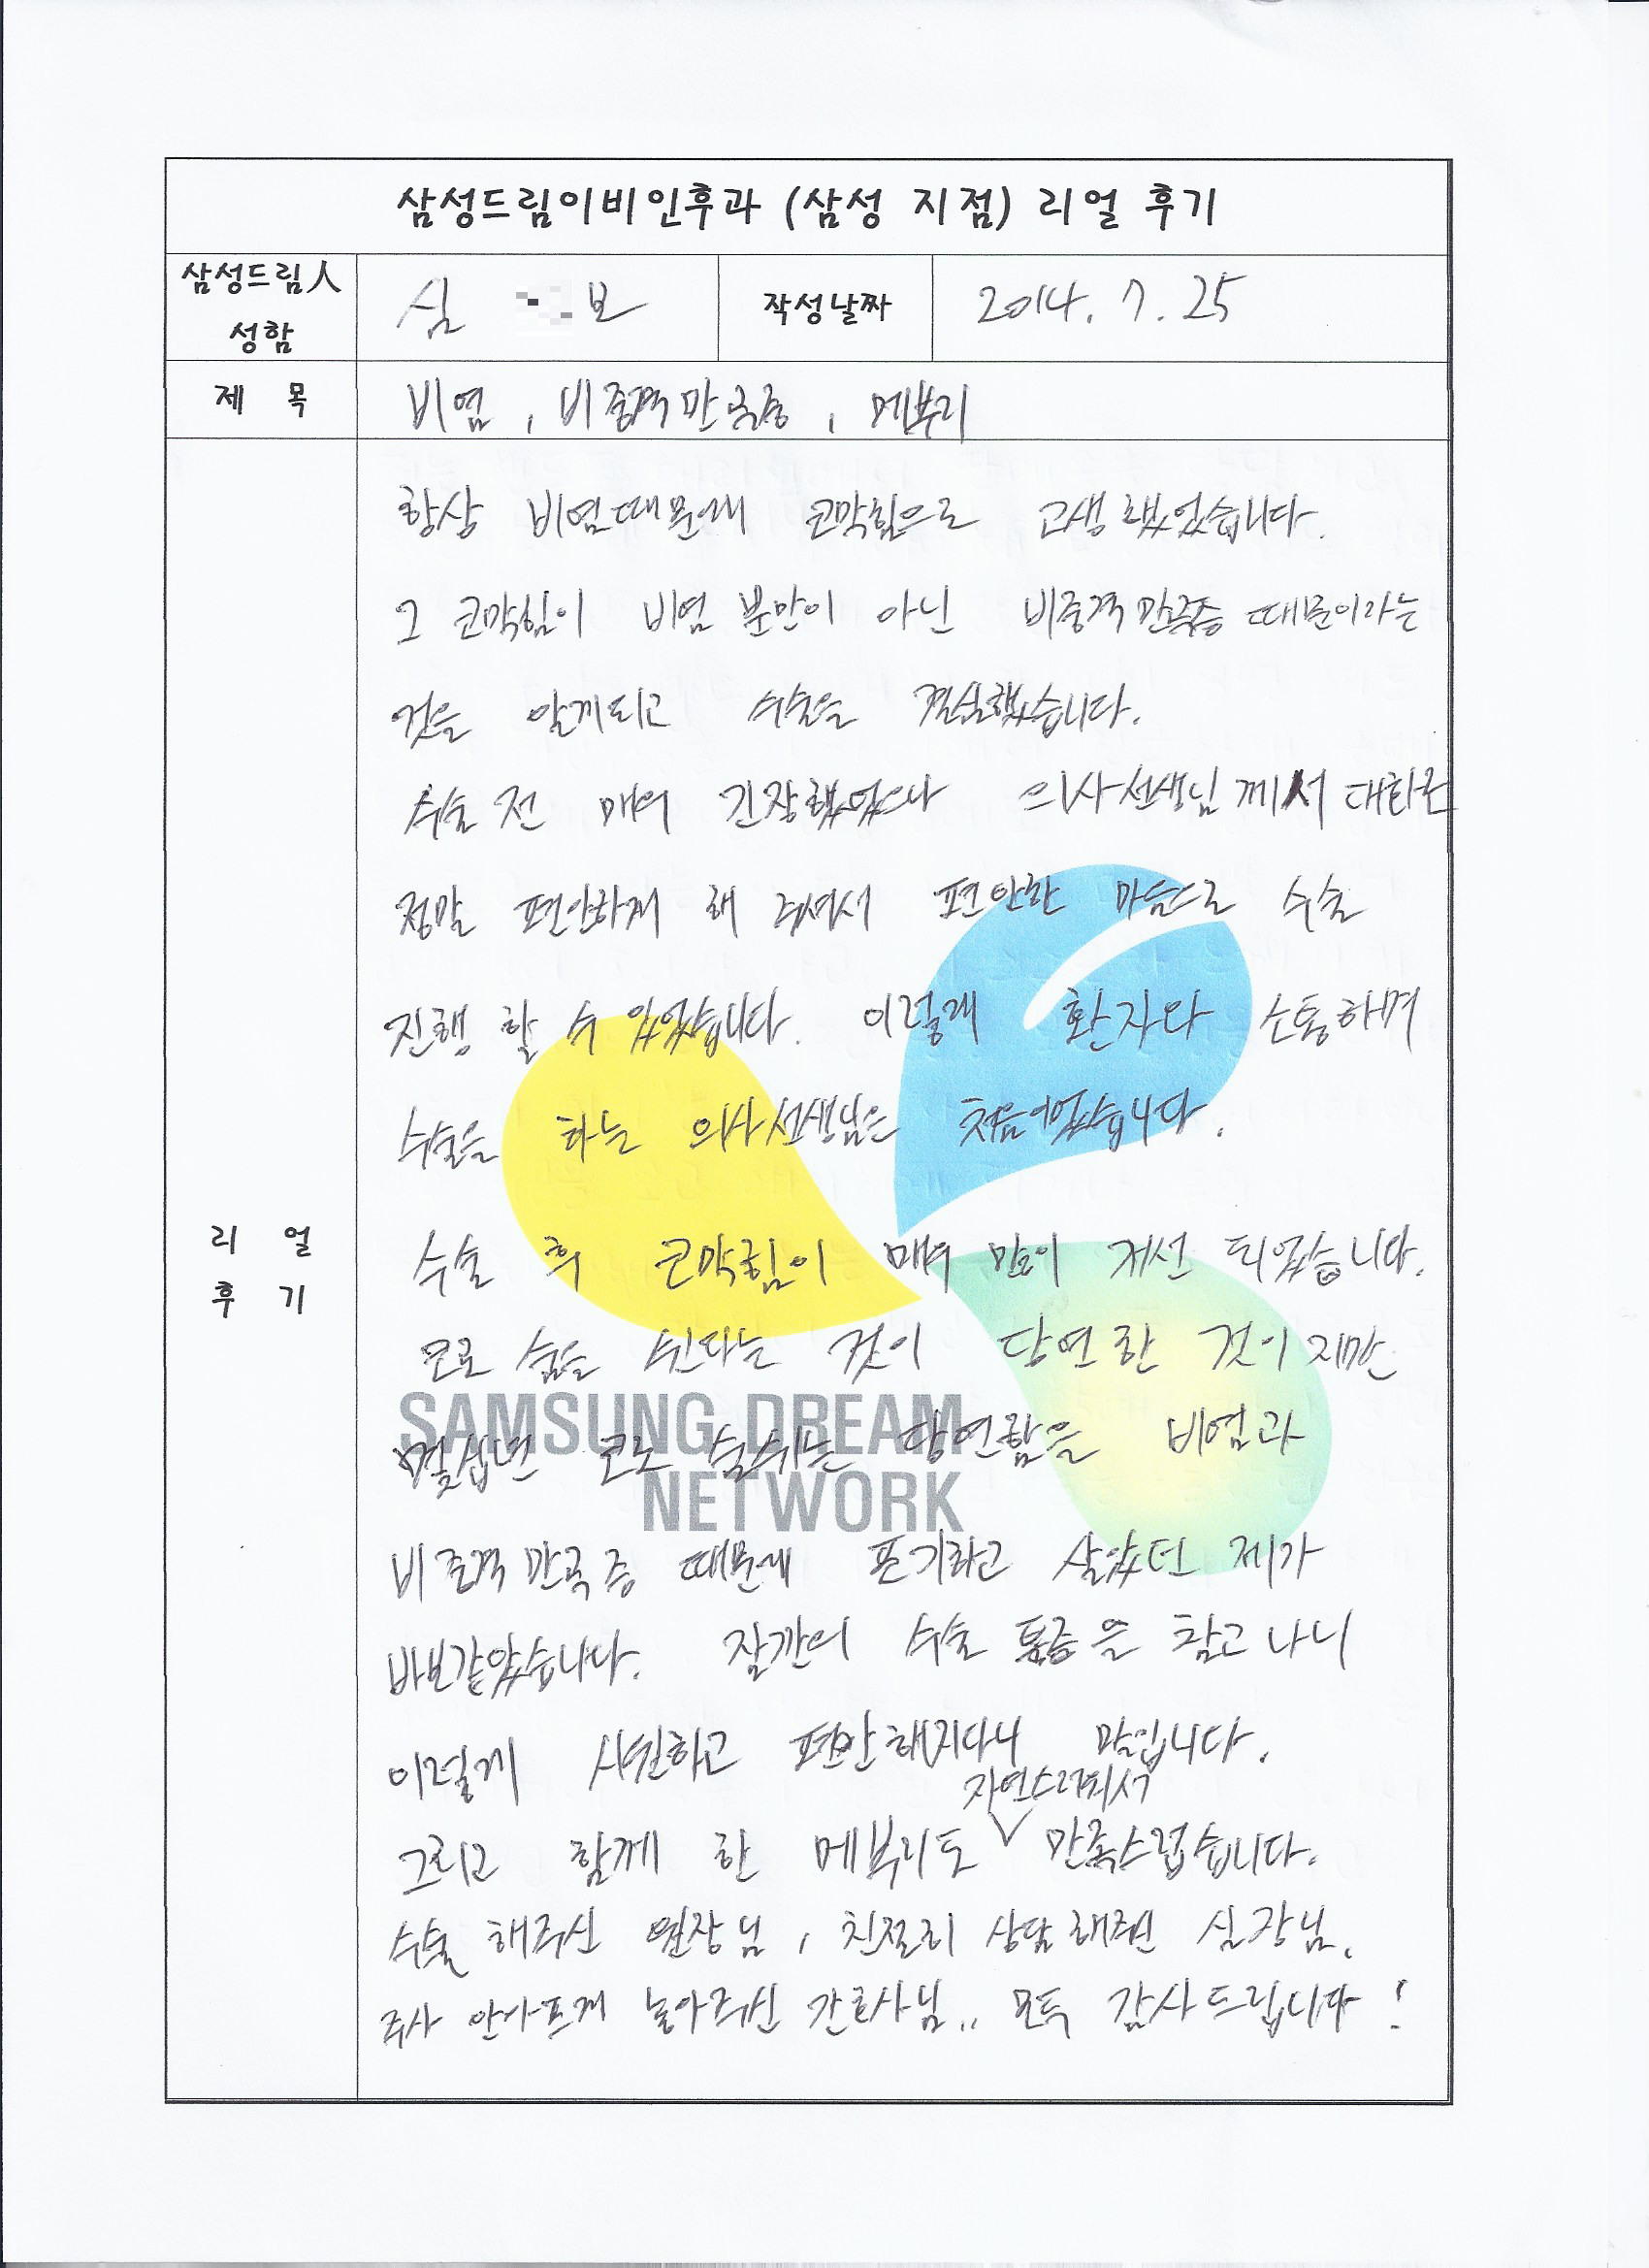 삼성드림이비인후과 (삼성 지점) 리얼 후기
삼성드림人 성함 심 보 작성날짜 2014. 7. 25
제 목 비염, 비중격만곡증, 메부리
항상 비염때문에 코막힘으로 고생했었습니다.
그 코막힘이 비염 뿐만이 아닌 비중격만곡증 때문이라는
것을 알게되고 수술을 결심했습니다.
수술 전 매우 긴장했었으나 의사선생님께서 대화로
정말 편안하게 해 주셔서 편안한 마음으로 수술
진행 할 수 있었습니다. 이렇게 환자와 소통하며
수술을 하는 의사선생님은 처음이었습니다.
리 얼 후 기
수술 후 코막힘이 매우 많이 개선 되었습니다.
코로 숨을 쉰다는 것이 당연한 것이지만
SAMSUNG DREAM
몇십년 코로 숨쉬는 당연함을 비염과
NETWORK
비중격만곡증 때문에 포기하고 살았던 제가
바보같았습니다. 잠깐의 수술 통증을 참고 나니
이렇게 시원하고 편안해지다니 말입니다.
자연스러워서
그리고 함께 한 메부리도 만족스럽습니다.
수술 해주신 원장님, 친절히 상담해주신 실장님,
주사 안아프게 놓아주신 간호사님.. 모두 감사드립니다!